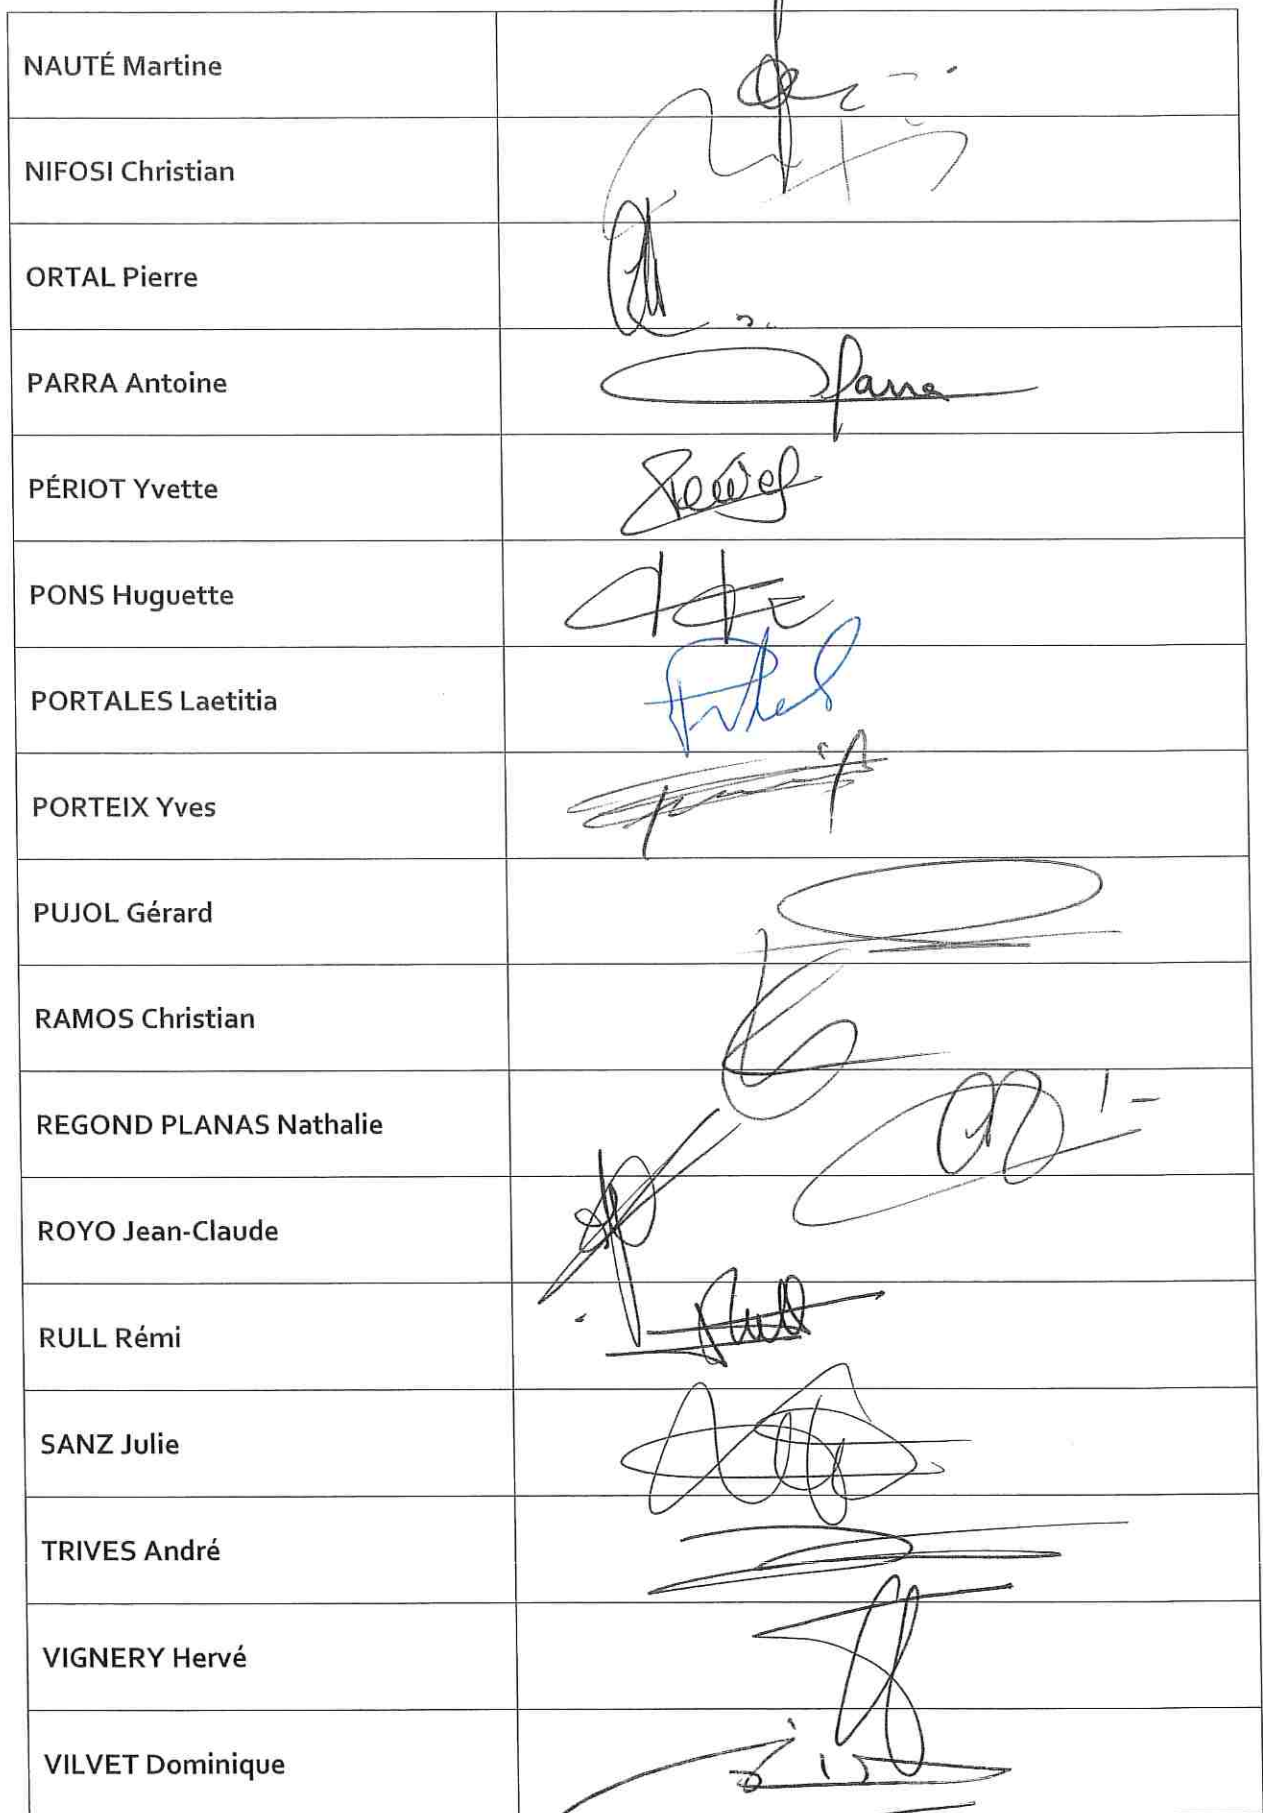 NAUTÉ Martine
NIFOSI Christian
ORTAL Pierre
PARRA Antoine
Parra
PÉRIOT Yvette
PONS Huguette
PORTALES Laetitia
PORTEIX Yves
PUJOL Gérard
RAMOS Christian
REGOND PLANAS Nathalie
ROYO Jean-Claude
RULL Rémi
Rull
SANZ Julie
TRIVES André
VIGNERY Hervé
VILVET Dominique